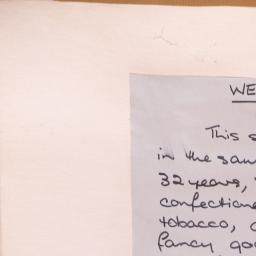 WE
This s
in the sam
32 years,
confectione
tobacco,
fancy goo